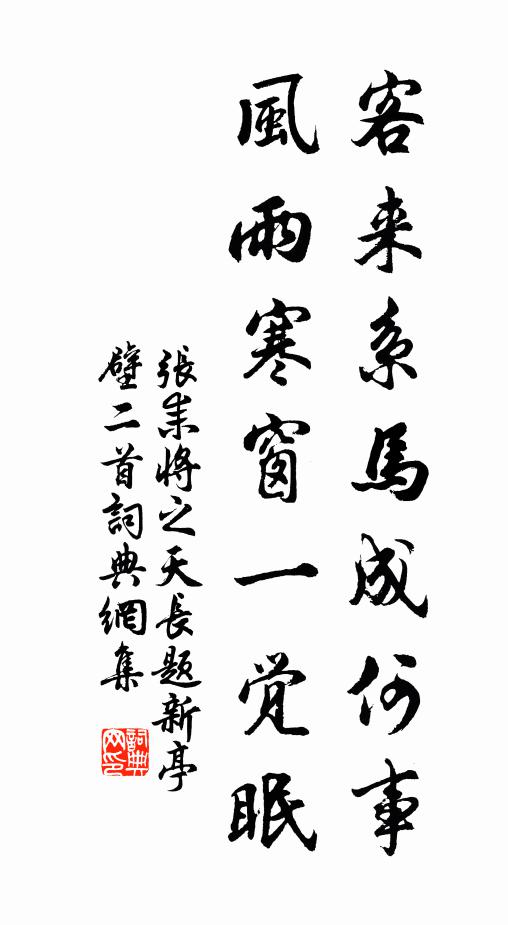 客来系馬成何事
風雨寒窗一覚眠
張耒將之天長题新亭
壁二首詞典網集
詞典網印